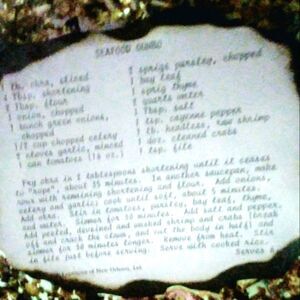 SEAFOOD GUMBO
1 lb. okra, sliced
4 Tbsp. shortening
2 Tbsp. flour
1 onion, chopped
1 bunch green onions, chopped
1/2 cup chopped celery
2 cloves garlic, minced
1 can tomatoes (16 oz.)
2 sprigs parsley, chopped
1 bay leaf
1 sprig thyme
2 quarts water
1 Tbsp. salt
1 tsp. cayenne pepper
1 lb. headless, raw shrimp
1 doz. cleaned crabs
1 tsp. file
Fry okra in 2 tablespoons shortening until it ceases
to "rope", about 35 minutes. In another saucepan, make
roux with remaining shortening and flour. Add onions,
celery and garlic; cook until soft, about 5 minutes.
Stir in tomatoes, parsley, bay leaf, thyme,
and okra. Add salt and pepper,
and water. Simmer for 30 minutes.
Add peeled, deveined and washed shrimp and crabs (break
off and crack the claws, and cut the body in half) and
simmer for 30 minutes longer. Remove from heat. Stir
in file just before serving. Serve with cooked rice.
Serves
of New Orleans, Ltd.